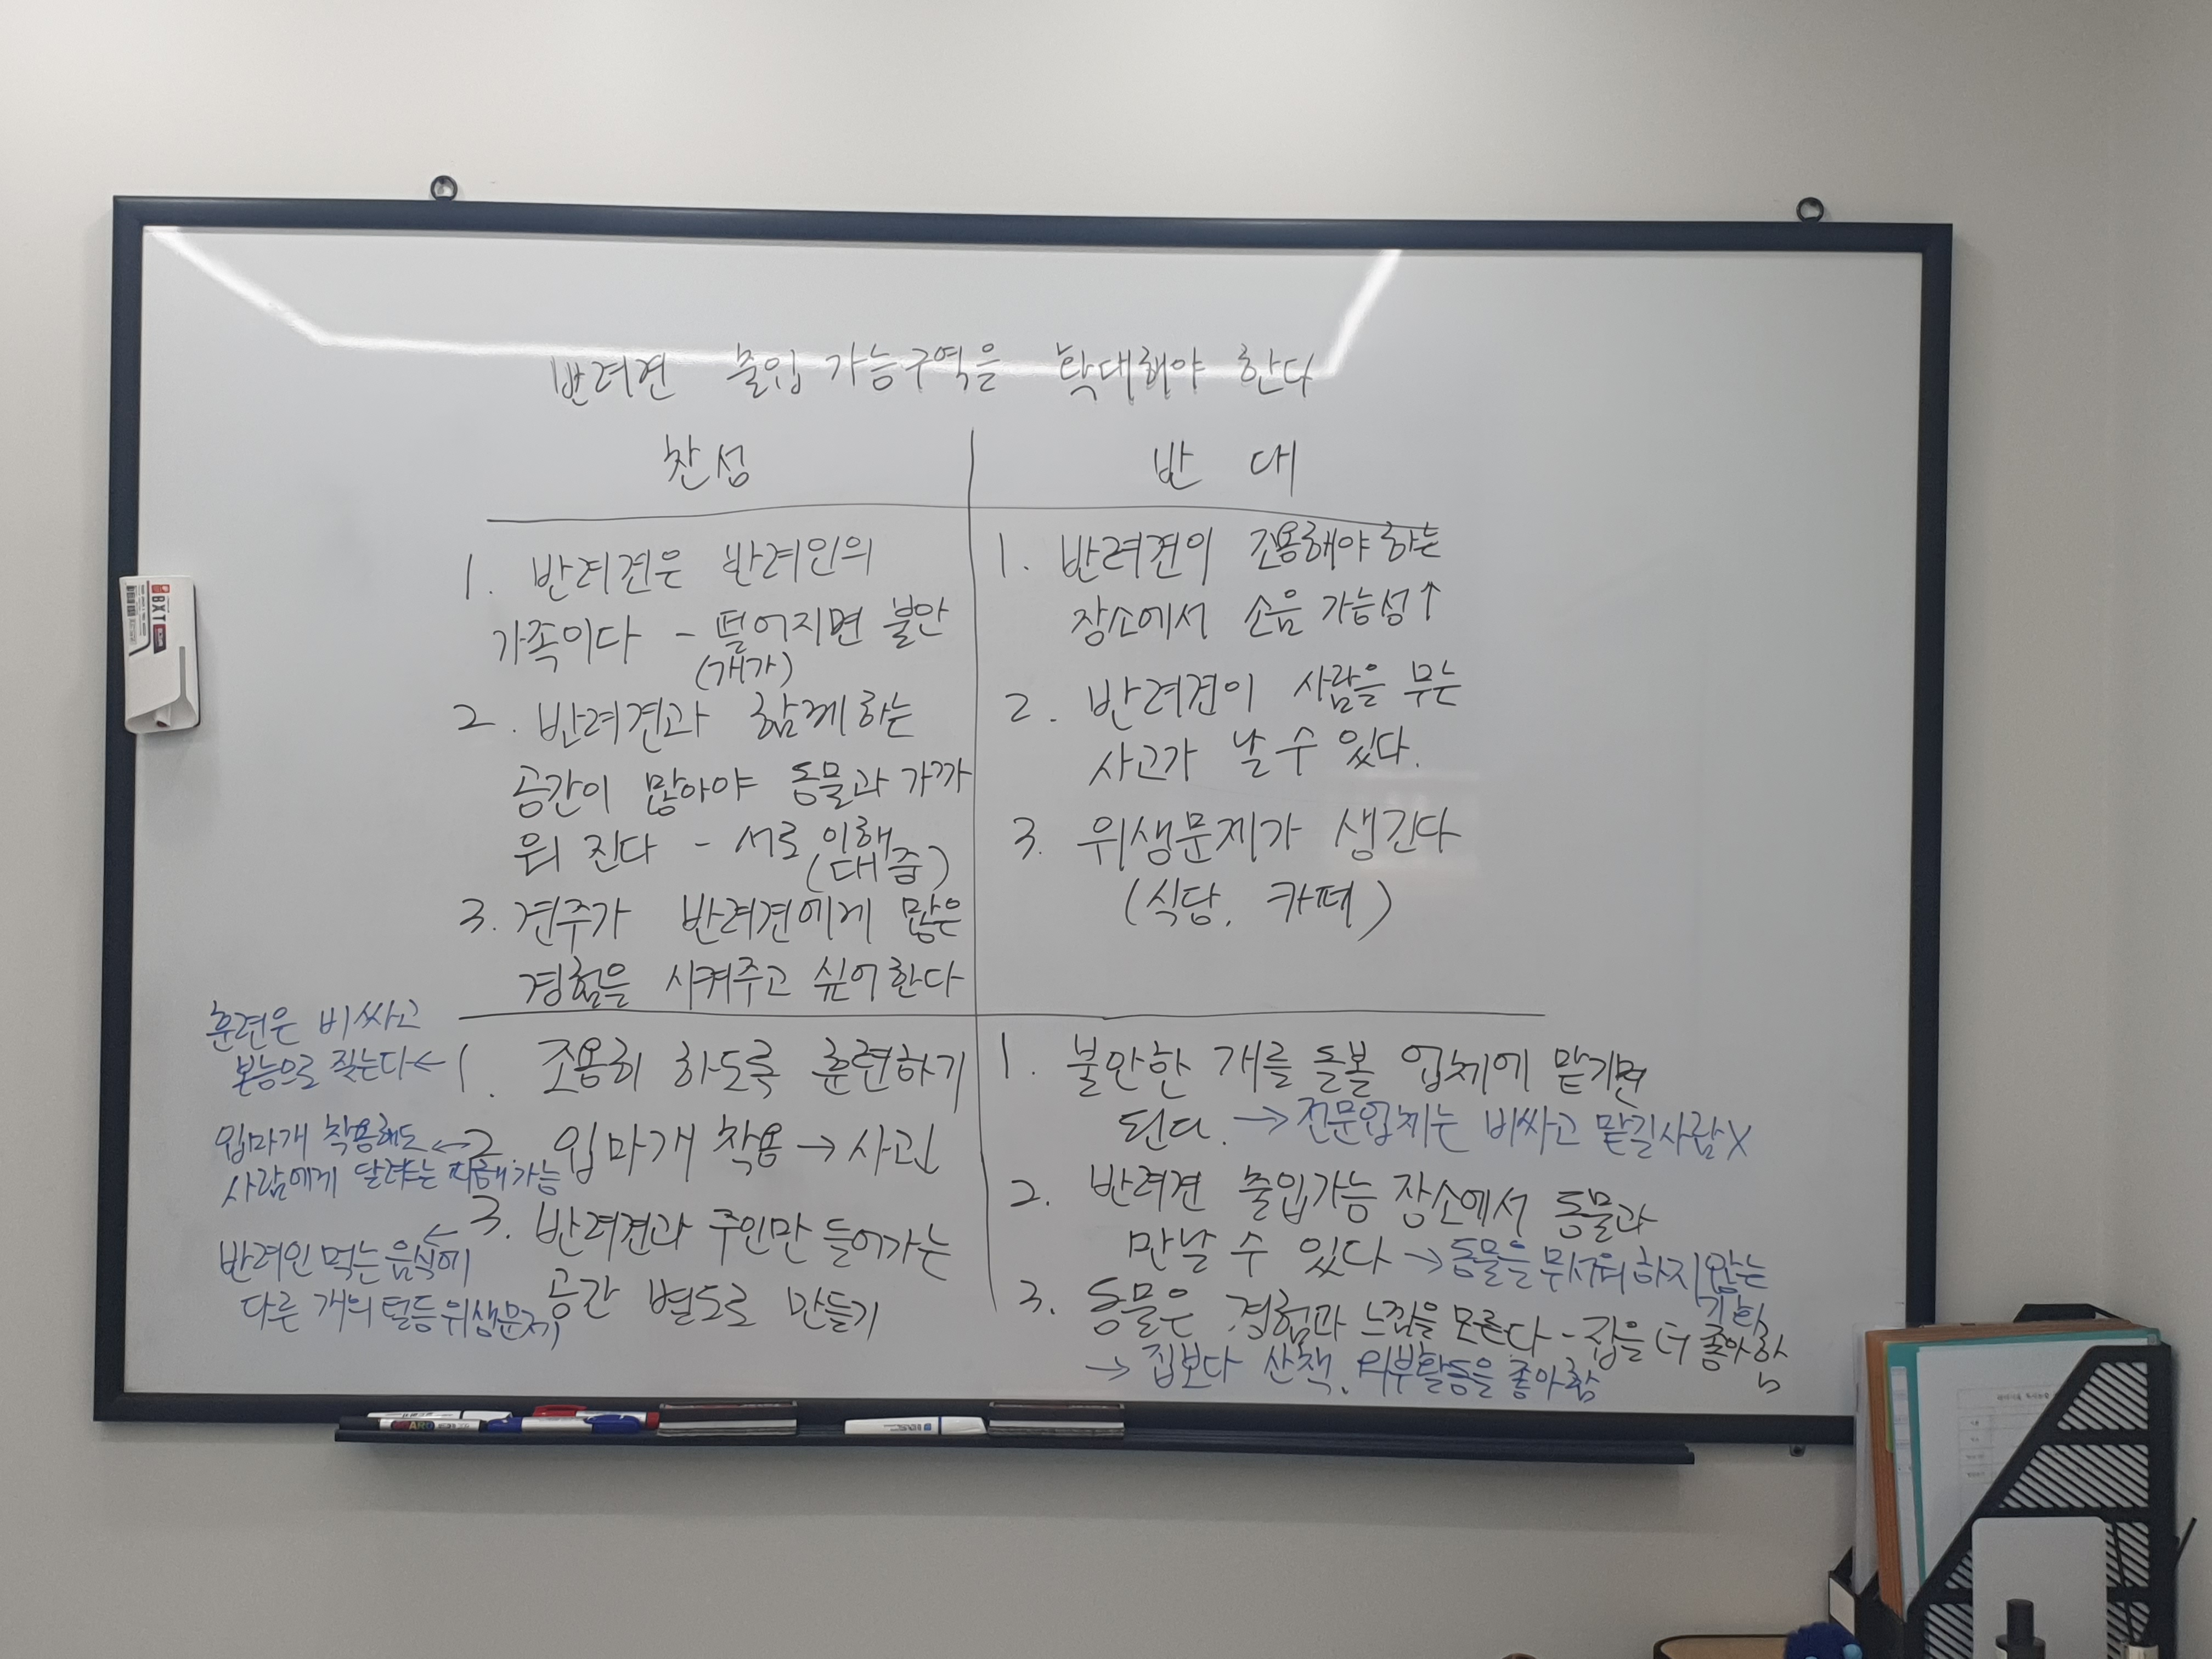 반려견 출입 가능구역을 확대해야 한다
찬성
1. 반려견은 반려인의
가족이다 - 떨어지면 불안
(개가)
2. 반려견과 함께하는
공간이 많아야 동물과 가까
워 진다 - 서로 이해
(대중)
3. 견주가 반려견에게 많은
경험을 시켜주고 싶어한다
반 대
1. 반려견이 조용해야 하는
장소에서 소음 가능성↑
2. 반려견이 사람을 무는
사고가 날 수 있다.
3. 위생문제가 생긴다
(식당, 카페)
1. 조용히 하도록 훈련하기
훈련은 비싸고
본능으로 짖는다←
2. 입마개 착용 →
입마개 착용해도 ←
사람에게 달려드는 피해가능
← 3. 반려견과 주인만 들어가는
공간 별도로 만들기
반려인 먹는 음식에
다른 개의 털등 위생문제
1. 불안한 개를 돌볼 업체에 맡기면
된다. → 전문업체는 비싸고 맡길사람X
2. 반려견 출입가능 장소에서 동물과
만날 수 있다 → 동물을 무서워 하지 않는
3. 동물은 경험과 느낌을 모른다 - 집을 더 좋아함
→ 집보다 산책, 외부활동을 좋아함
BXT